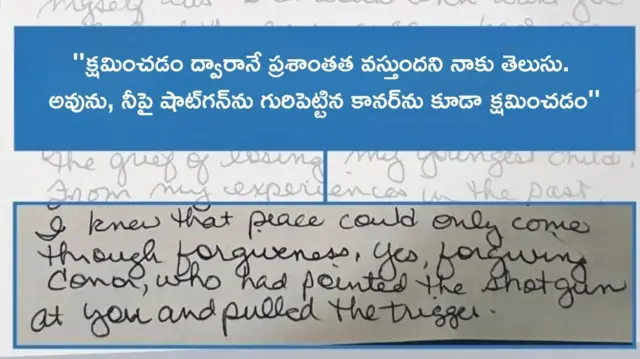 myself
"క్షమించడం ద్వారానే ప్రశాంతత వస్తుందని నాకు తెలుసు.
అవును, నీపై షాట్‌గన్‌ను గురిపెట్టిన కానర్‌ను కూడా క్షమించడం"
The grief of losing my youngest child.
From my experiences in the past,
I knew that peace could only come
through forgiveness, yes, forgiving
Conor, who had pointed the shotgun
at you and pulled the trigger.